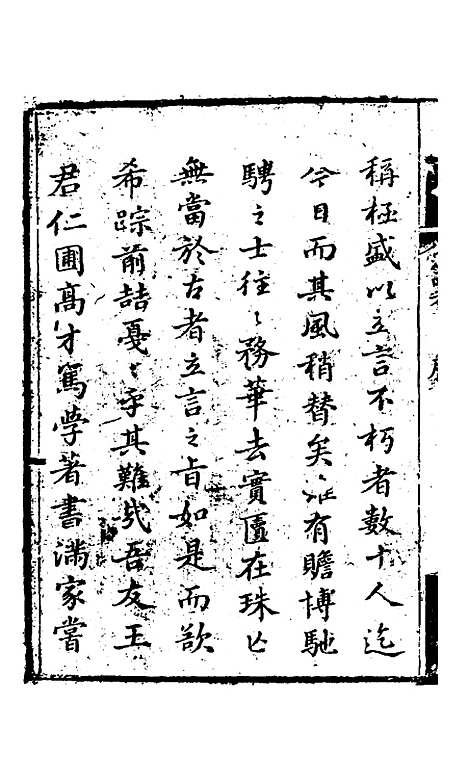 稱極盛以立言不朽者數十人迄
今日而其風稍替矣雖有瞻博馳
騁之士往〻務華去實匱在珠亡
無當於古者立言之旨如是而欲
希踪前喆戛〻乎其難哉吾友王
君仁圃高才篤學著書滿家嘗